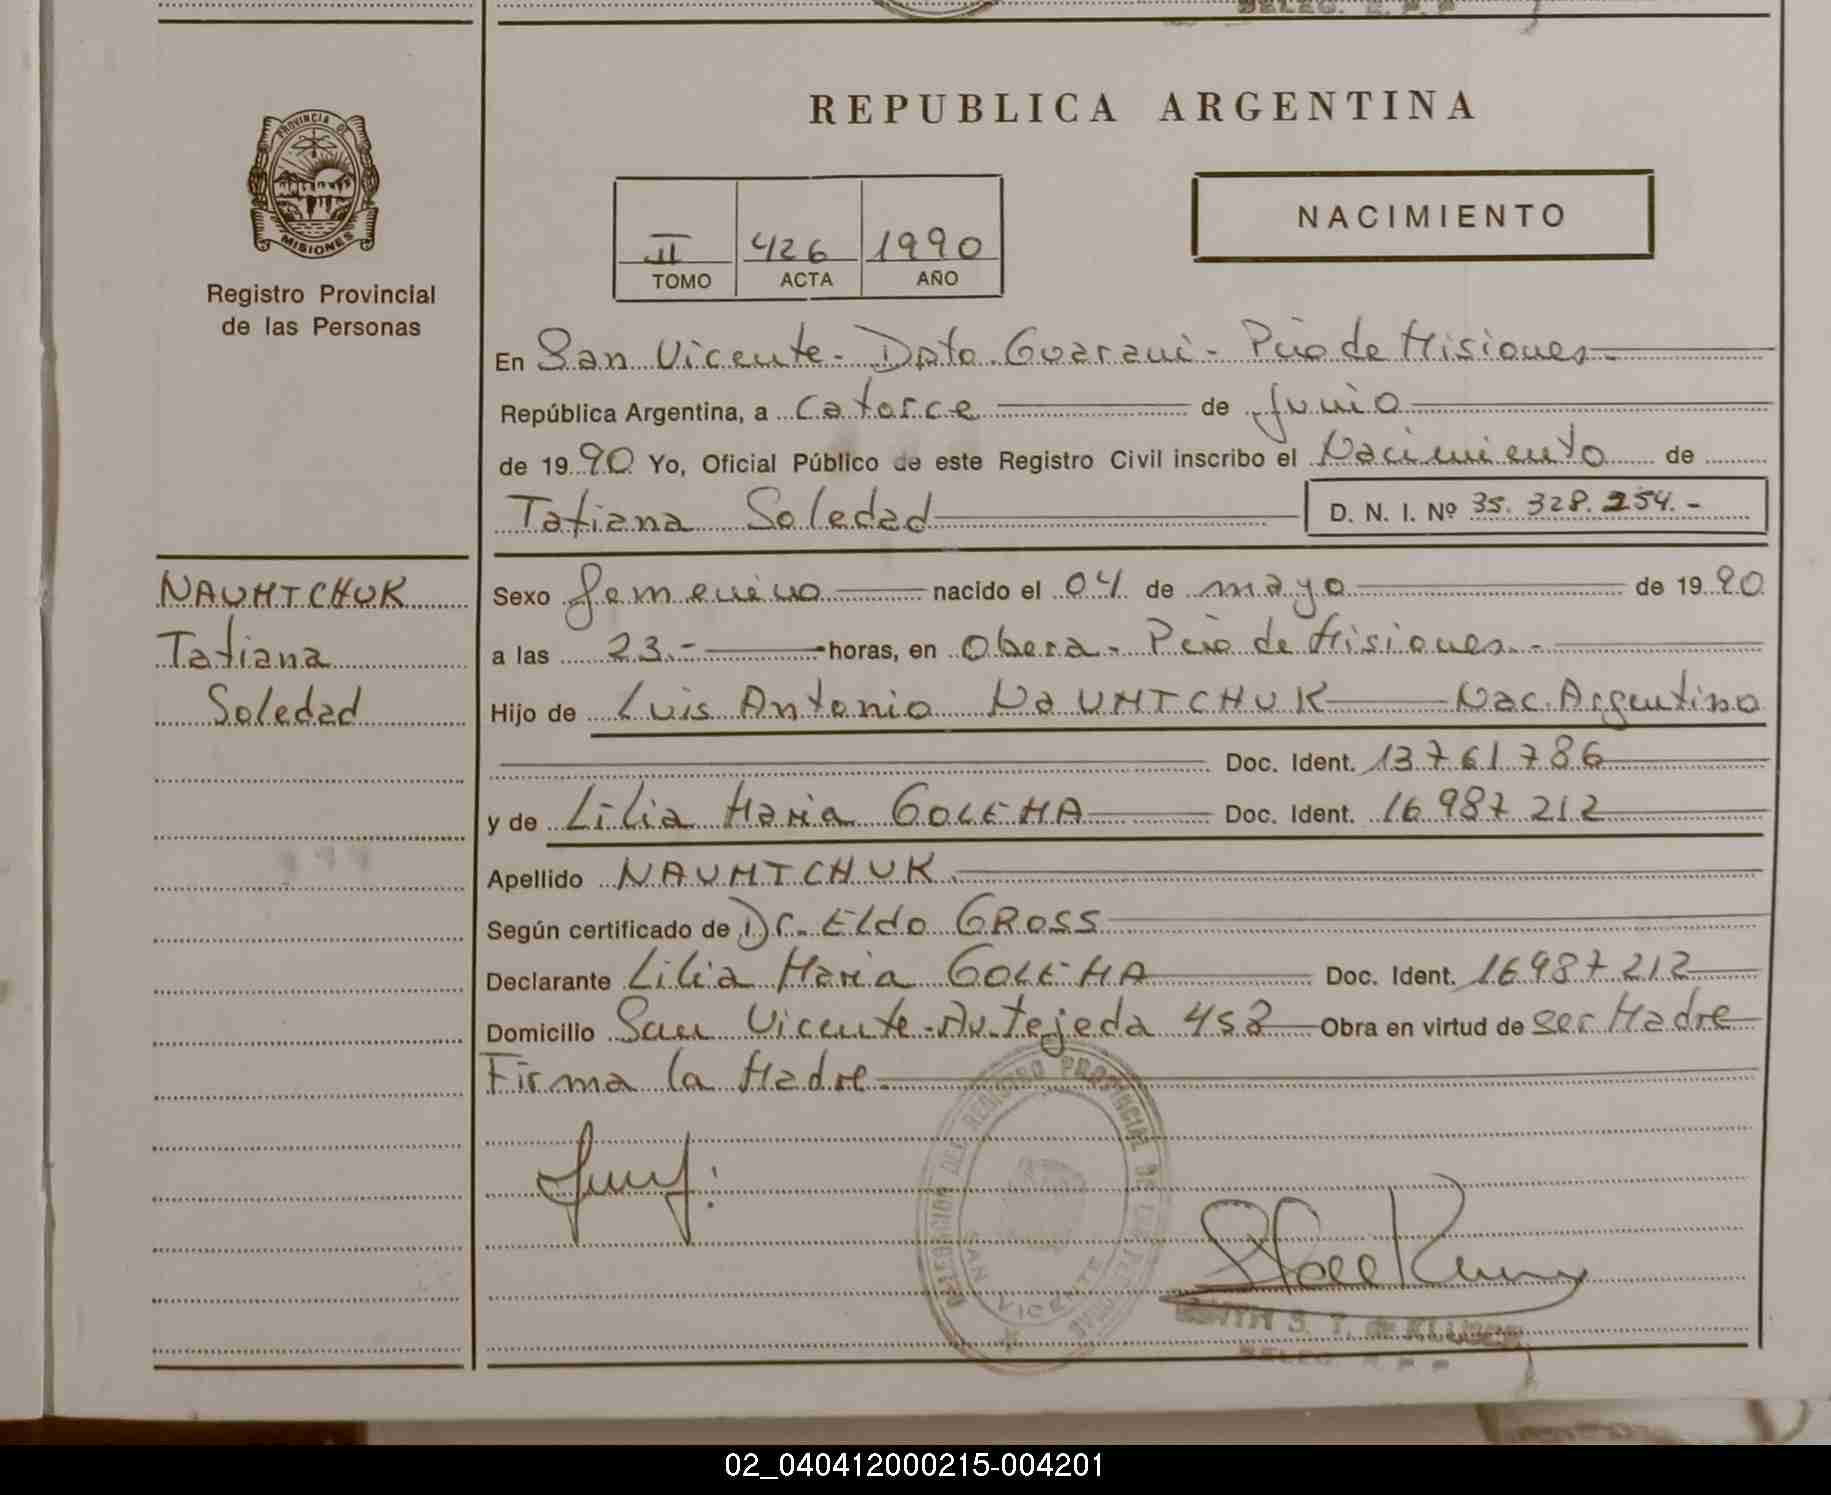 DELEG. R. P. P
REPUBLICA ARGENTINA
PROVINCIA DE
MISIONES
Registro Provincial
de las Personas
NACIMIENTO
II 426 1990
TOMO ACTA AÑO
En San Vicente - Dpto. Guarani - Pcia de Misiones
República Argentina, a catorce de Junio
de 1990 Yo, Oficial Público de este Registro Civil inscribo el Nacimiento de
Tatiana Soledad D. N. I. Nº 35.328.254.-
NAUMTCHUK
Tatiana
Soledad
Sexo femenino nacido el 04 de mayo de 1990
a las 23.- horas, en Obera - Pcia de Misiones.-
Hijo de Luis Antonio NaUMTCHUK Nac. Argentino
Doc. Ident. 13761786
y de Lilia Maria GOLEMA Doc. Ident. 16987212
Apellido NAUMTCHUK
Según certificado de Dr. Eldo GROSS
Declarante Lilia Maria GOLEMA Doc. Ident. 16987212
Domicilio San Vicente - Av. Tejeda 452 Obra en virtud de ser Madre
Firma la Madre.
DELEGACION DEL REGISTRO PROVINCIAL DE LAS PERSONAS
SAN VICENTE
S. T. de
DELEG. R. P. P
02_040412000215-004201